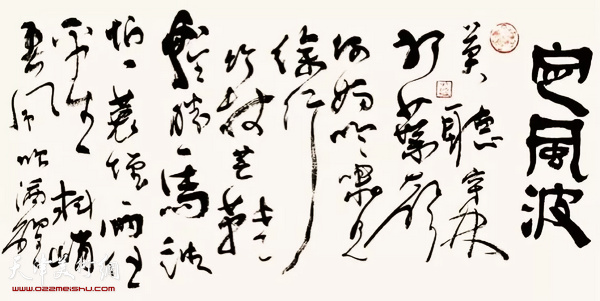 定風波
莫聽穿林
打葉聲
何妨吟嘯且
徐行
竹杖芒鞋
輕勝馬誰
怕一蓑煙雨任
平生料峭
春風吹酒醒
天津美术网
www.022meishu.com